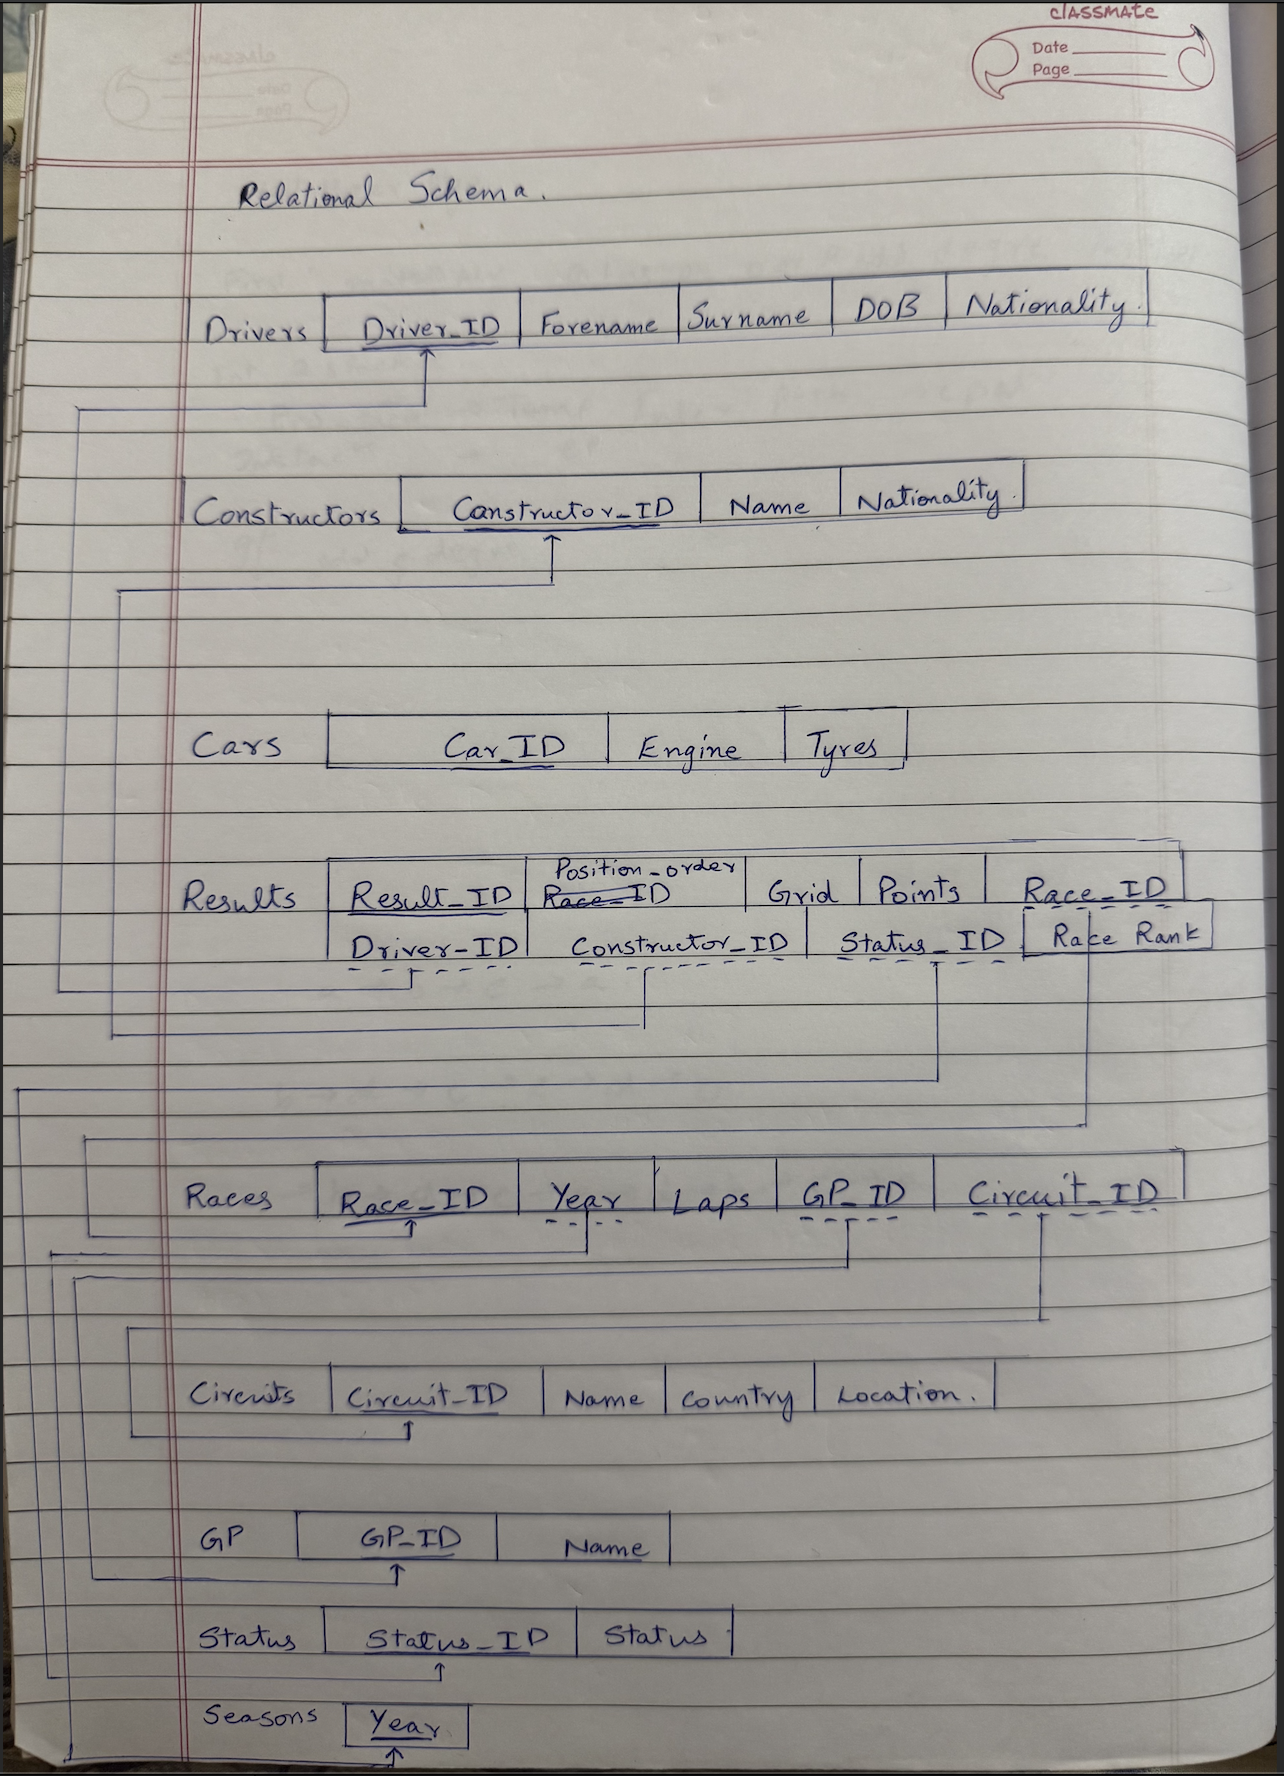 classmate
Date
Page
Relational Schema.
Drivers Driver_ID Forename Surname DOB Nationality.
Constructors Constructor_ID Name Nationality.
Cars Car_ID Engine Tyres
Position_order
Results Result_ID Race_ID Grid Points Race_ID
Driver-ID Constructor_ID Status_ID Race Rank
Races Race_ID Year Laps GP_ID Circuit_ID
Circuits Circuit_ID Name Country Location.
GP GP_ID Name
Status Status_ID Status
Seasons Year